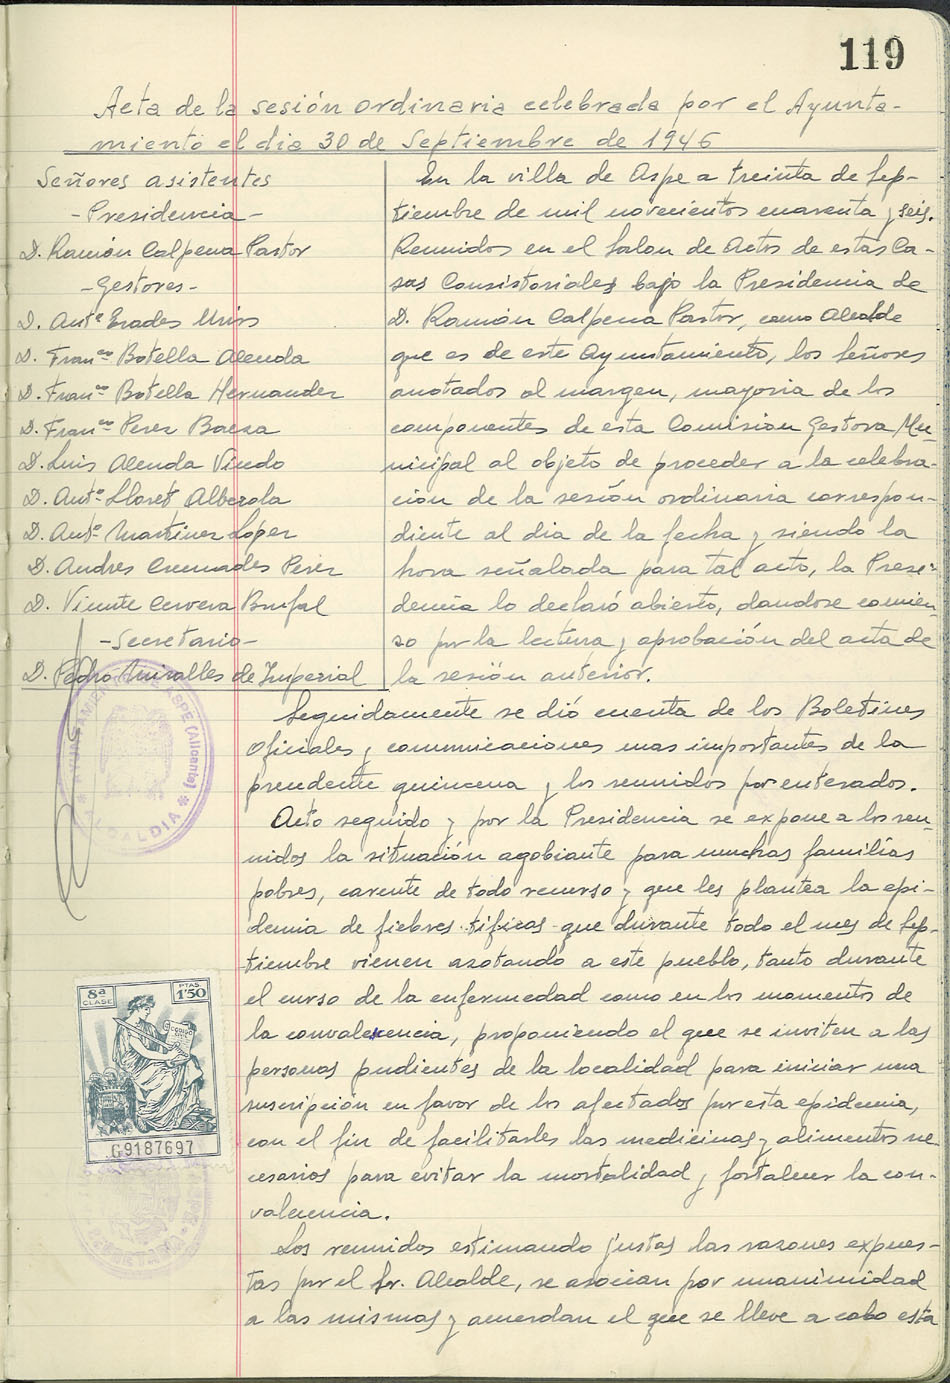 119
Acta de la sesión ordinaria celebrada por el Ayunta-
miento el dia 30 de Septiembre de 1946
Señores asistentes
-Presidencia-
D. Ramón Calpena Pastor
-Gestores-
D. Antº Erades Miris
D. Franco Botella Alenda
D. Franco Botella Hernandez
D. Franco Perez Baeza
D. Luis Alenda Viudo
D. Antº Lloret Alberola
D. Antº Martinez López
D. Andres Cremades Perez
D. Vicente Cervera Brufal
-Secretario-
D. Pedro Miralles de Imperial
En la villa de Aspe a treinta de Sep-
tiembre de mil novecientos cuarenta y seis.
Reunidos en el Salon de Actos de estas Ca-
sas Consistoriales bajo la Presidencia de
D. Ramón Calpena Pastor, como Alcalde
que es de este Ayuntamiento, los Señores
anotados al margen, mayoria de los
componentes de esta Comision Gestora Mu-
nicipal al objeto de proceder a la celebra-
ción de la sesión ordinaria correspon-
diente al dia de la fecha y siendo la
hora señalada para tal acto, la Presi-
dencia lo declaró abierto, dandose comien-
zo por la lectura y aprobación del acta de
la sesión anterior.
Seguidamente se dió cuenta de los Boletines
Oficiales y comunicaciones mas importantes de la
precedente quincena y los reunidos por enterados.
Acto seguido y por la Presidencia se expone a los reu-
nidos la situación agobiante para muchas familias
pobres, carente de todo recurso y que les plantea la epi-
demia de fiebres tificas que durante todo el mes de Sep-
tiembre vienen azotando a este pueblo, tanto durante
el curso de la enfermedad como en los momentos de
la convalecencia, proponiendo el que se inviten a las
personas pudientes de la localidad para iniciar una
suscripción en favor de los afectados por esta epidemia,
con el fin de facilitarles las medicinas y alimentos ne-
cesarios para evitar la mortalidad y fortalecer la con-
valecencia.
Los reunidos estimando justas las razones expues-
tas por el Sr. Alcalde, se asocian por unanimidad
a las mismas y acuerdan el que se lleve a cabo esta
AYUNTAMIENTO DE ASPE (Alicante)
* ALCALDIA *
8ª CLASE
PTAS 1'50
CODIGO
G9187697